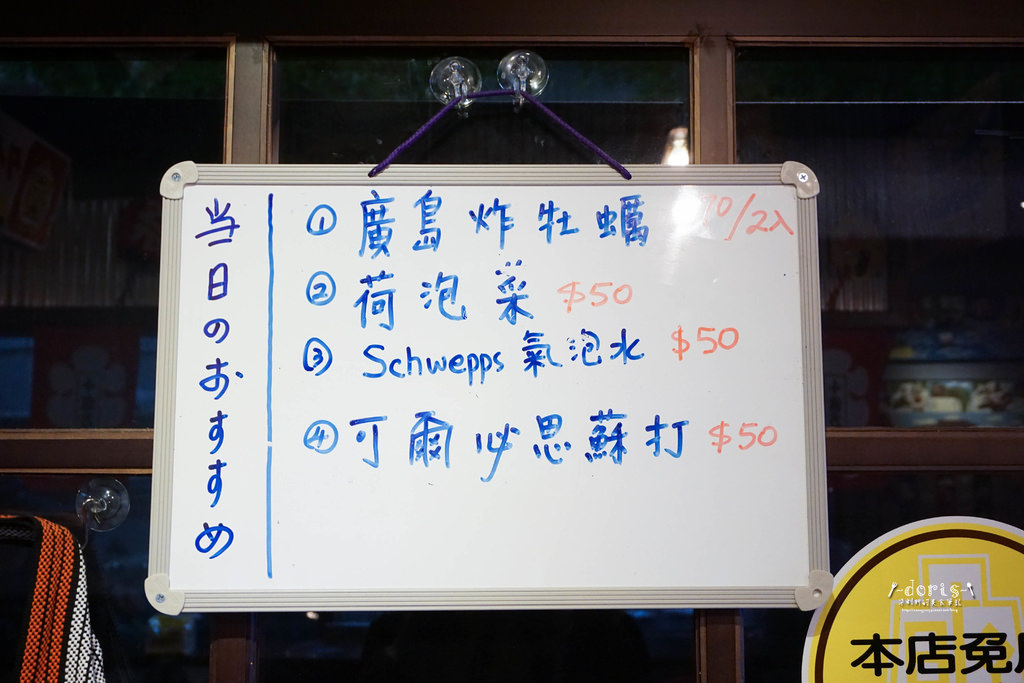 当日のおすすめ
① 廣島炸牡蠣 /2入
② 荷泡菜 $50
③ Schwepps 氣泡水 $50
④ 可爾必思蘇打 $50
-doris-
本店免